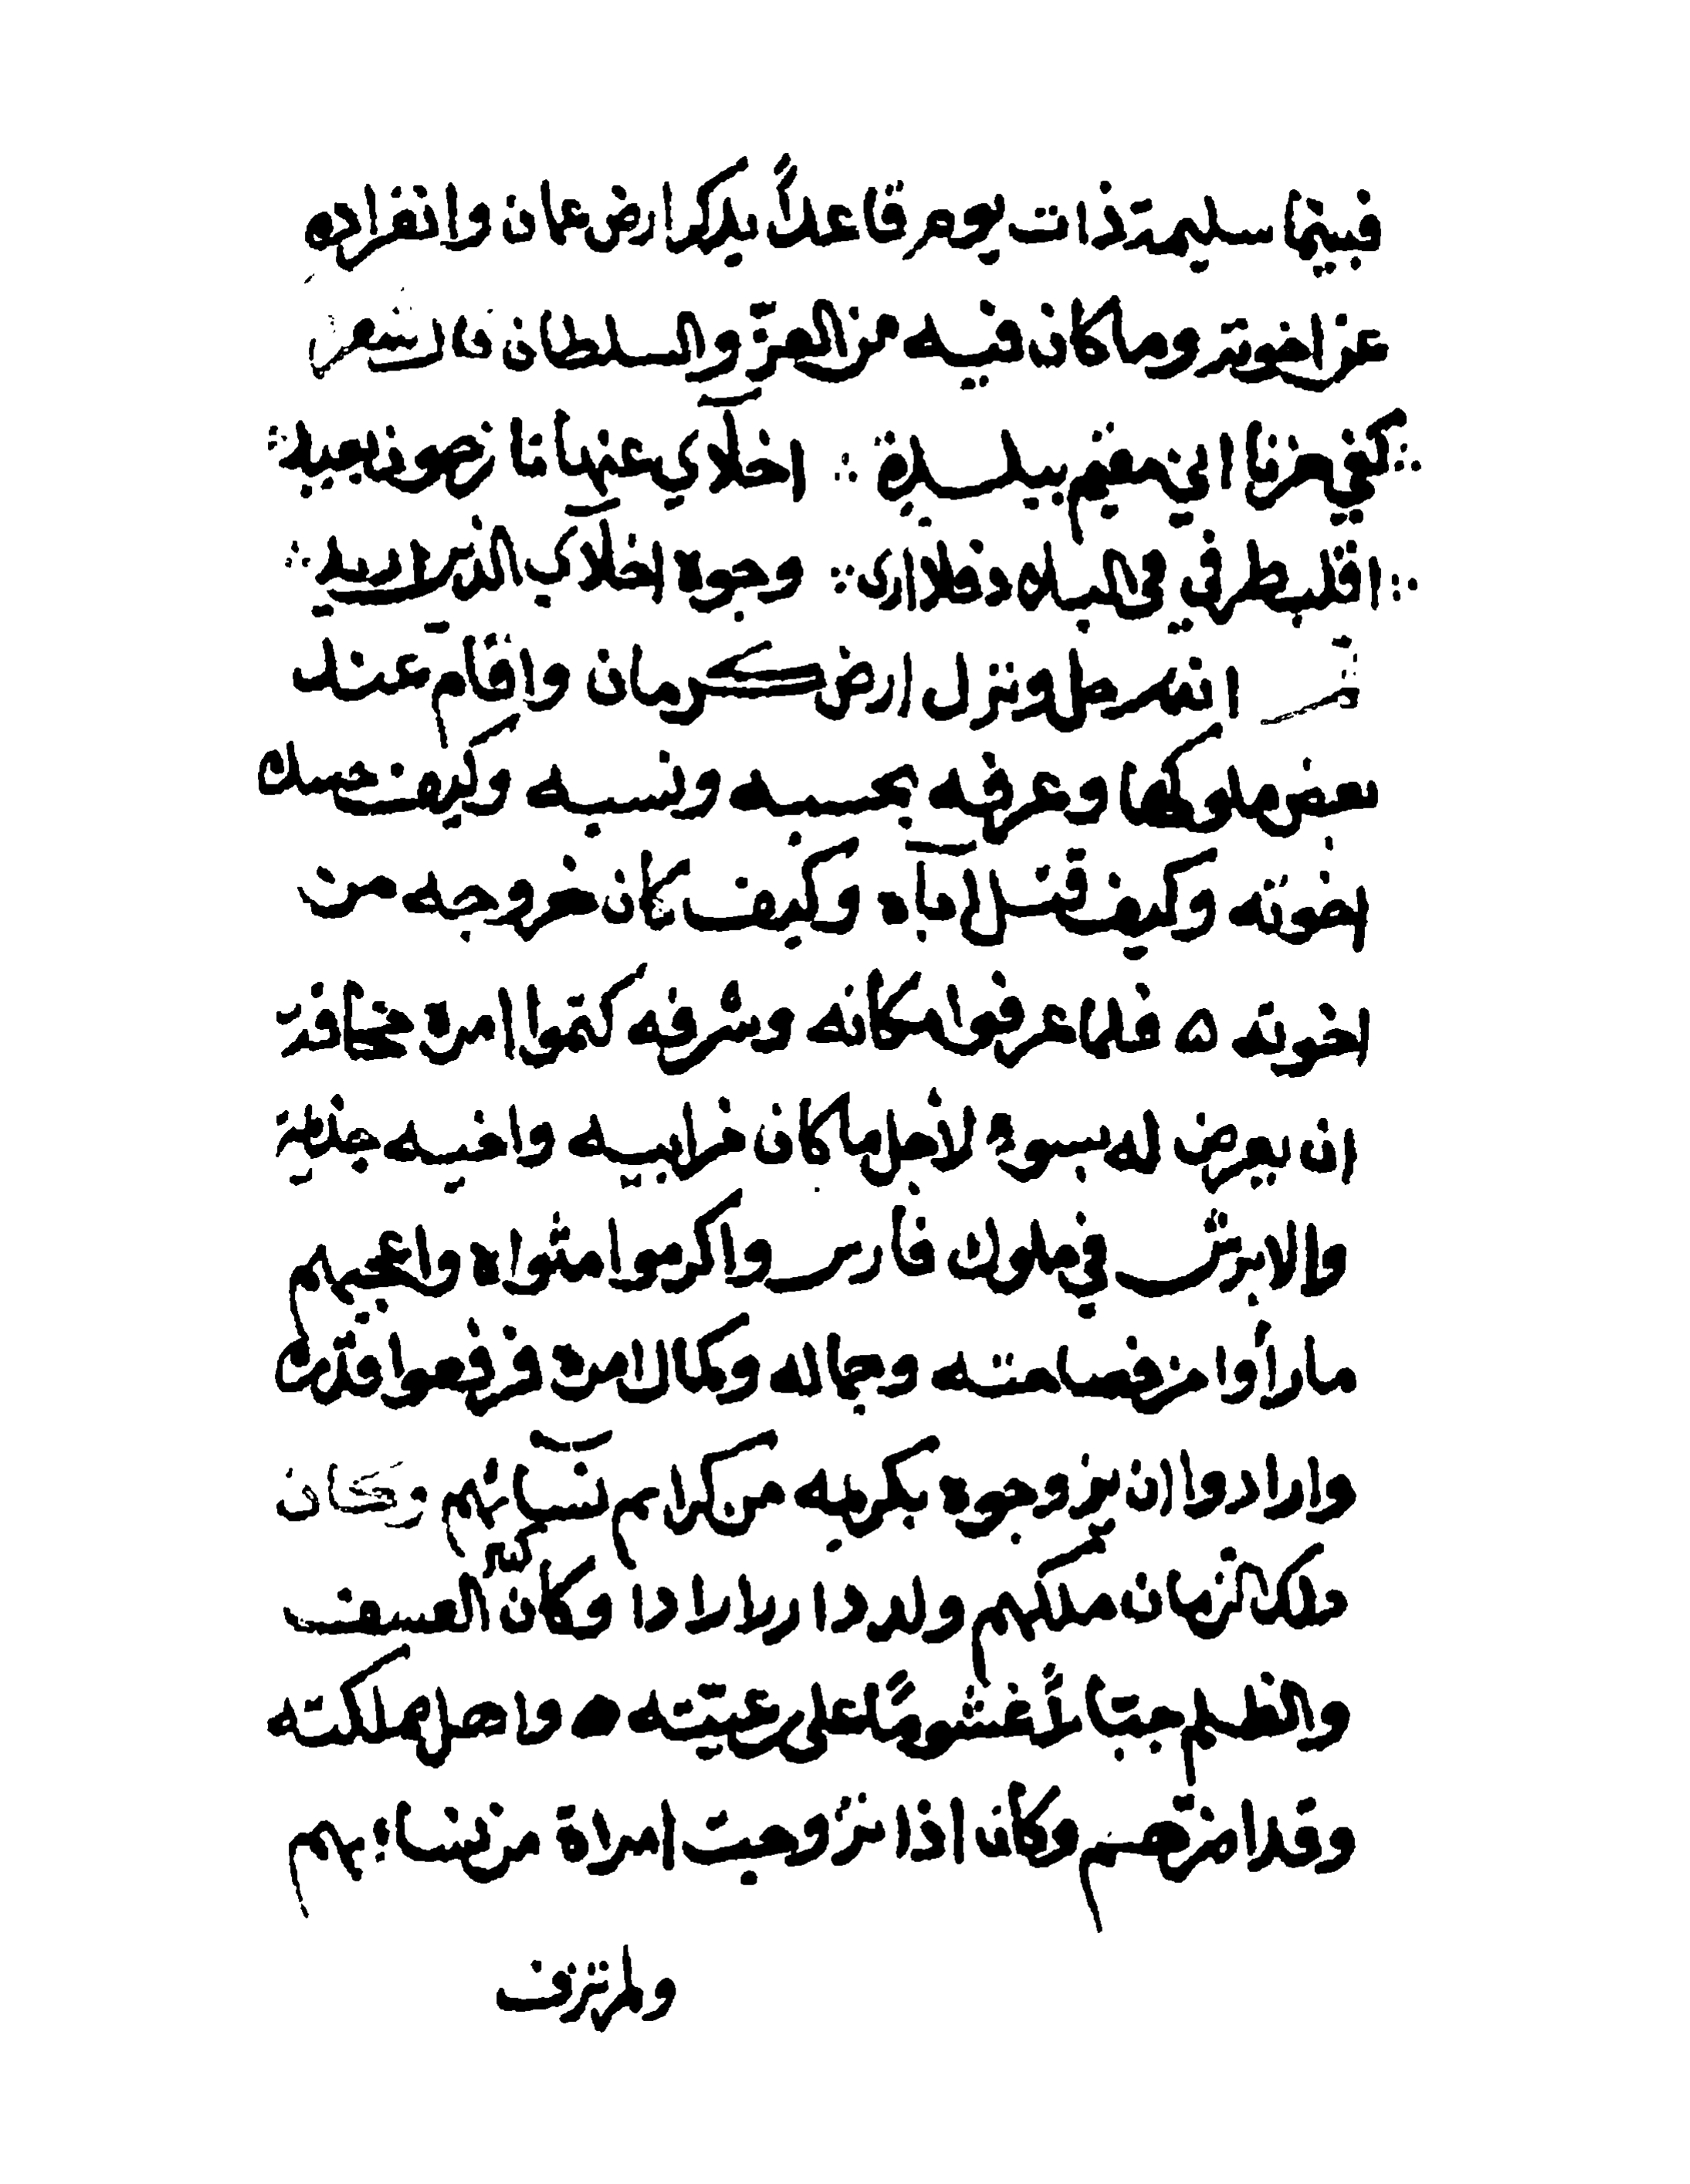 فبينما سليمة ذات يوم قاعداً يذكر ارض عمان وانفراده
عن اخوته وما كان فيه من العزّ والسلطان قال شعر
كفى حزنا اني مقيم ببلدة ∴ اخلآي عنها نازحون بعيد
اقلب طرفي في البلاد فلا ارى ∴ وجوه اخلآي الذين اريد
ثم انه رحل ونزل ارض كرمان واقام عند
بعض ملوكها وعرفه بحسبه ونسبه وكيف حسده
اخوته وكيف قتل اباه وكيف كان خروجه من
اخوته ه فلما عرفوا مكانه وشرفه كتموا امره مخافة
ان يعرض له بسوء لاجل ما كان من ابيه واخيه جذيمة
والابرش في ملوك فارس واكرموا مثواه واعجبهم
ما رأوا من فصاحته وجماله وكمال امره فرفعوا قدره
وارادوا ان يزوجوه بكريمه من كرايم نسآئهم وكان
ملك الزمان ملكهم ولد دارا بن دارا وكان كثير العسف
والظلم جبتاراً غشوماً على رعيته واهل مملكته
وقد امتهنهم وكان اذا تزوجت امراة من نساءهم
ولم تزف